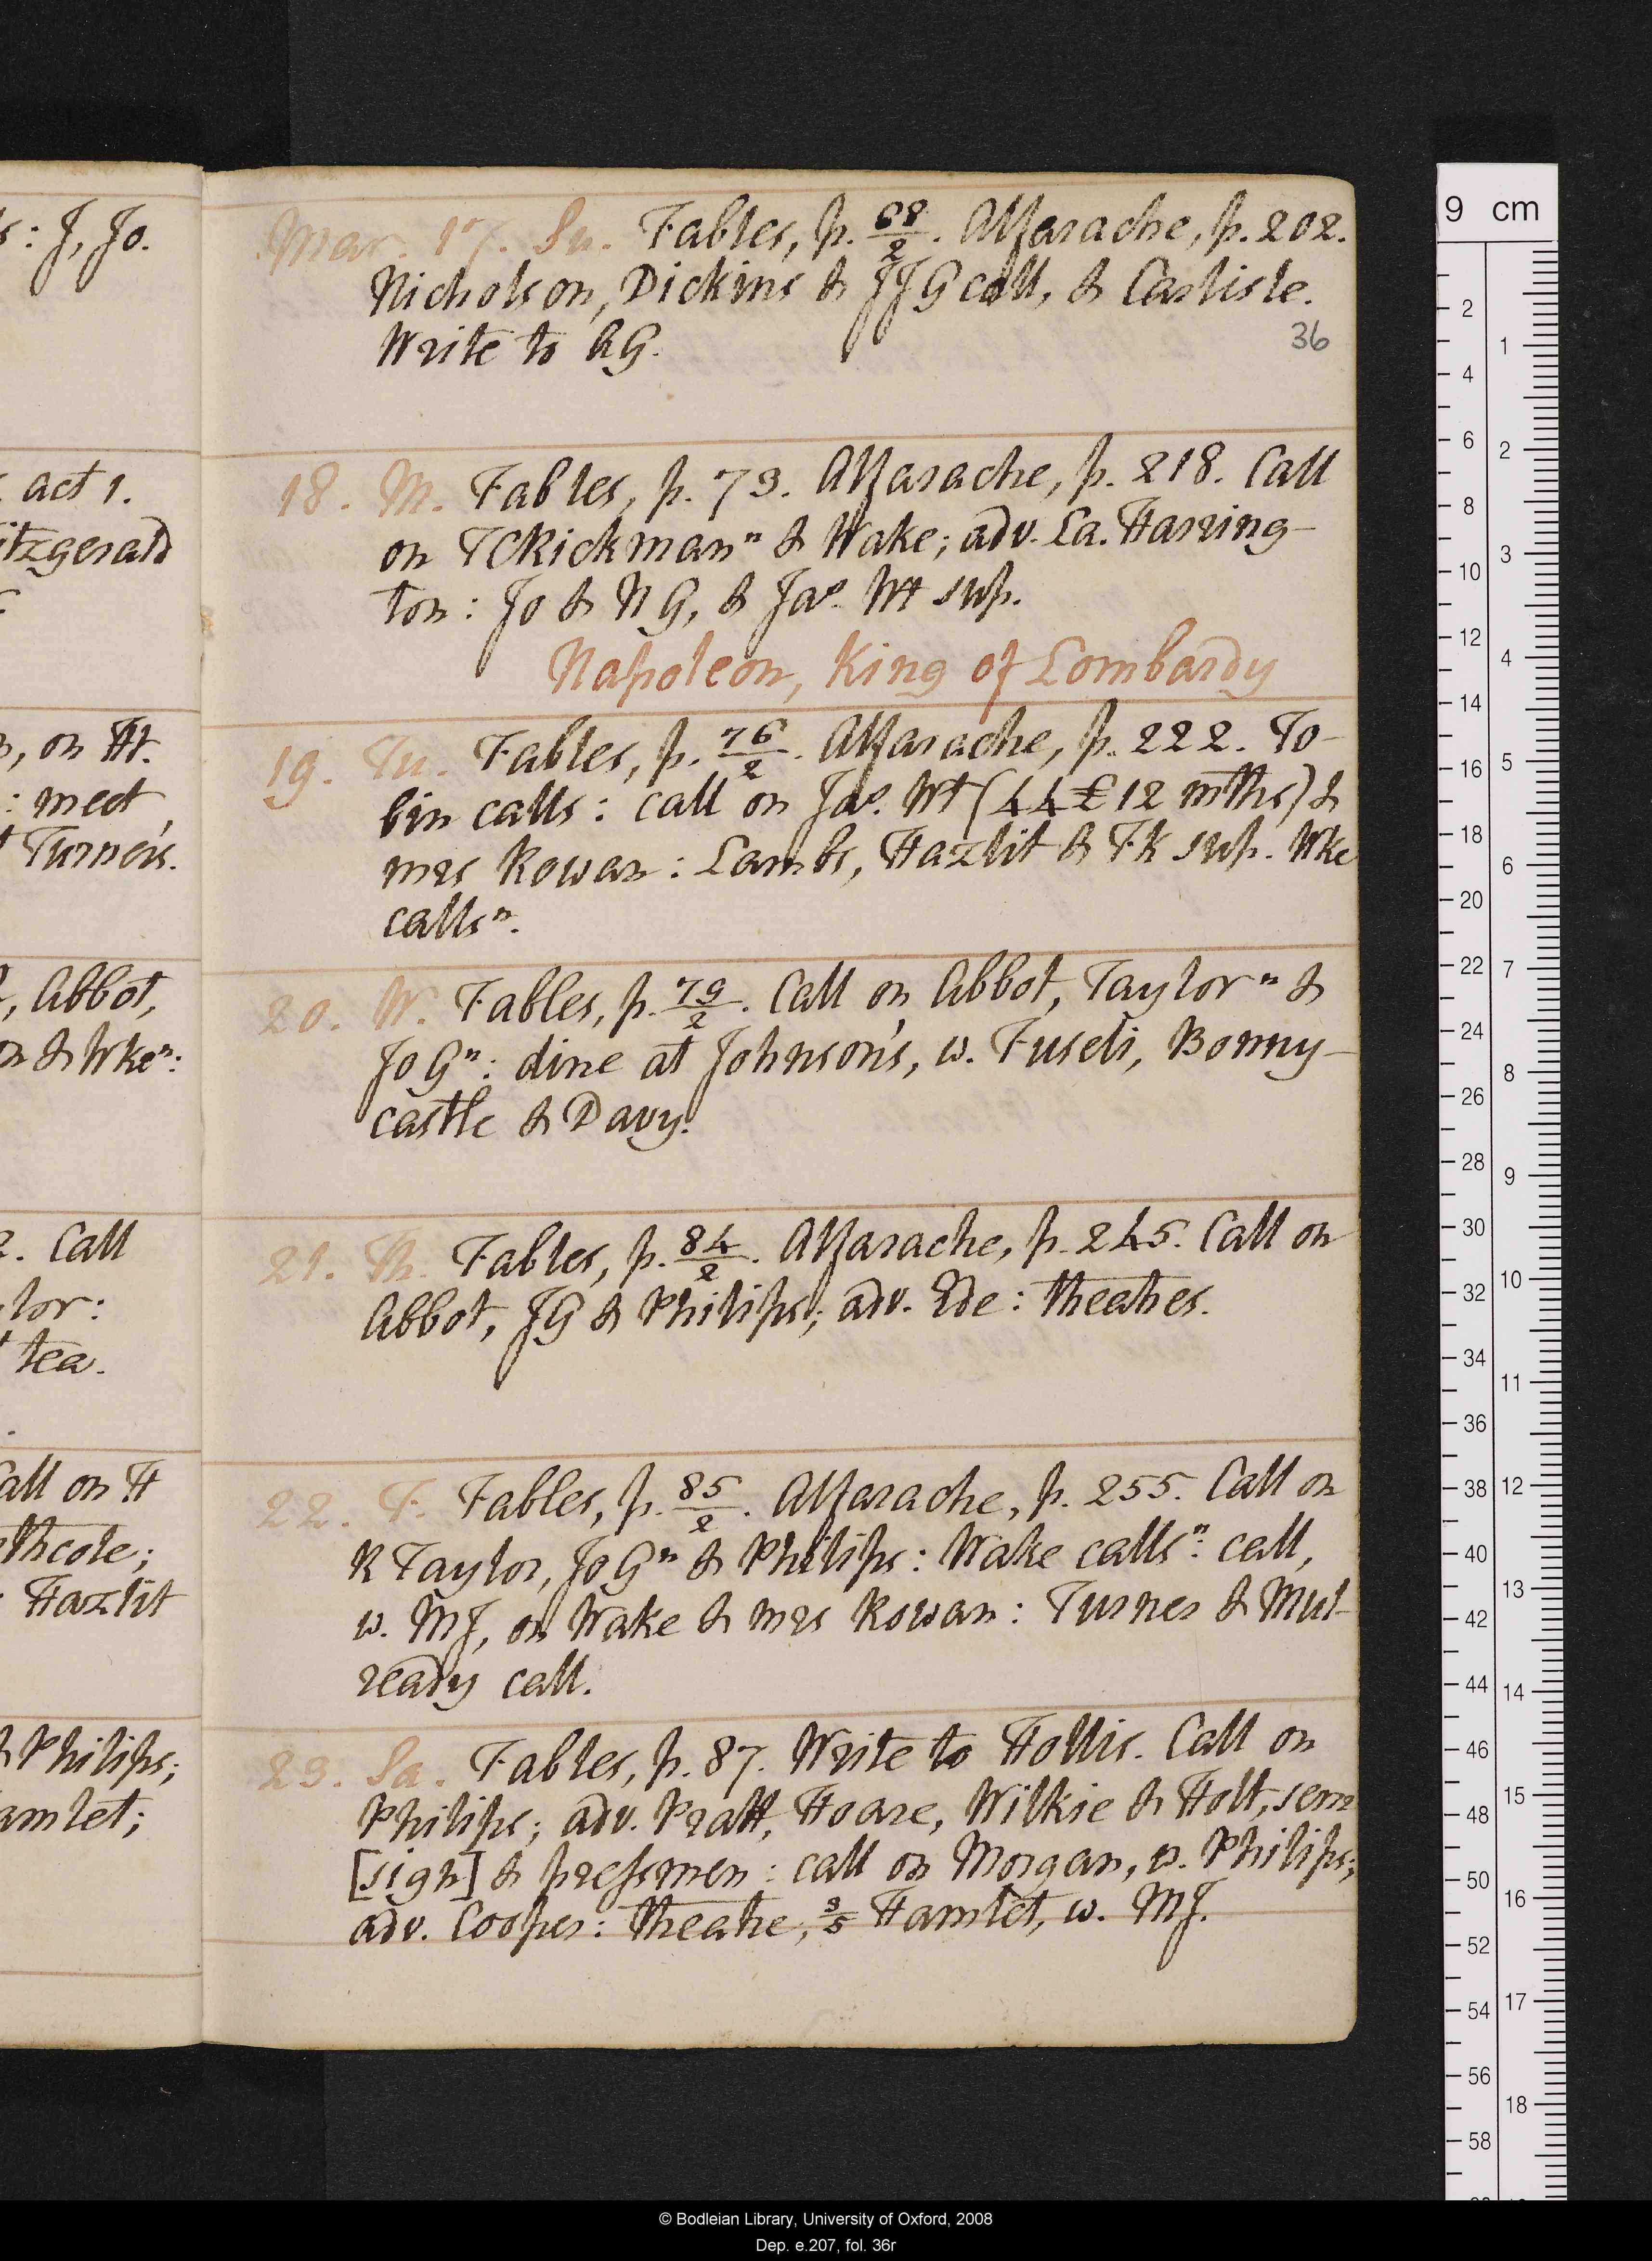 s: J, Jo.
act 1.
itzgerald
, on Ht.
: meet
t Turner's.
, Abbot,
on & Wkeⁿ:
2. Call
lor:
t tea.
Call on H
thcote;
: Hazlit
& Philips;
amlet;
Mar. 17. Su. Fables, p. 68/2. Alfarache, p. 202.
Nicholson, Dickins & JJG call, & Carlisle.
Write to AG.
36
18. M. Fables, p. 73. Alfarache, p. 218. Call
on TCRickmanⁿ & Wake; adv. La. Harring-
ton: Jo & N G, & Jaˢ. Wt sup.
Napoleon, King of Lombardy
19. Tu. Fables, p. 76/2. Alfarache, p. 222. To-
bin calls: call on Jaˢ. Wt (44£ 12 mths) &
mrs Rowan: Lambs, Hazlit & FK sup. Wke
callsⁿ.
20. W. Fables, p. 79/2. Call on Abbot, Taylorⁿ &
Jo Gⁿ: dine at Johnson's, w. Fuseli, Bonny-
castle & Davy.
21. Th. Fables, p. 84/2. Alfarache, p. 245. Call on
Abbot, JG & Philips; adv. Ede: theatres.
22. F. Fables, p. 85/2. Alfarache, p. 255. Call on
R Taylor, Jo Gⁿ & Philips: Wake callsⁿ: call,
w. MJ, on Wake & mrs Rowan: Turner & Mul-
ready call.
23. Sa. Fables, p. 87. Write to Hollis. Call on
Philips; adv. Pratt, Hoare, Wilkie & Holt, sem
[sign] & pressmen: call on Morgan, w. Philips;
adv. Cooper: theatre, 3/5 Hamlet, w. MJ.
9 cm
2 4 6 8 10 12 14 16 18 20 22 24 26 28 30 32 34 36 38 40 42 44 46 48 50 52 54 56 58
1 2 3 4 5 6 7 8 9 10 11 12 13 14 15 16 17 18
© Bodleian Library, University of Oxford, 2008
Dep. e.207, fol. 36r